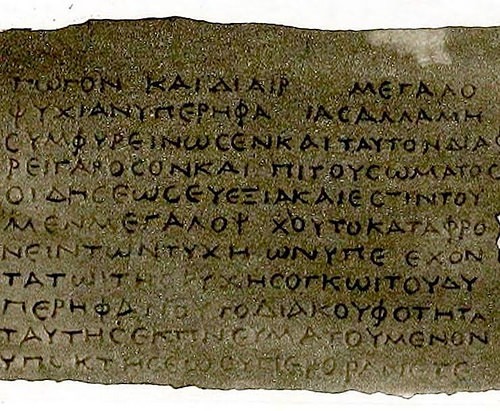 ΤΩΓΟΝ ΚΑΙΔΙΑΙΡ ΜΕΓΑΛΟ
ΨΥΧΙΑΝΥΠΕΡΗΦΑ ΙΑϹΑΛΛΑΜΗ
ϹΥΜΦΥΡΕΙΝΩϹΕΝΚΑΙΤΑΥΤΟΝΔΙΑΦ
ΡΕΙΓΑΡΟϹΟΝΚΑΙ ΠΙΤΟΥϹΩΜΑΤΟϹ
ΟΙΔΗϹΕΩϹΕΥΕΞΙΑΚΑΙΕϹΤΙΝΤΟΥ
ΜΕΝΜΕΓΑΛΟΨ ΧΟΥΤΟΚΑΤΑΦΡΟ
ΝΕΙΝΤΩΝΤΥΧΗ ΩΝΥΠΕ ΕΧΟΝ
ΤΑΤΩΙΤΗϹ ΥΧΗϹΟΓΚΩΙΤΟΥΔΥ
ΠΕΡΗΦΑ ΤΟΔΙΑΚΟΥΦΟΤΗΤΑ
ΤΑΥΤΗϹΕΚΠΝΕΥΜΑΤΟΥΜΕΝΟΝ
ΥΠΟΚΤΗϹΕΩϹΥΠΕΡΟΡΑΝ